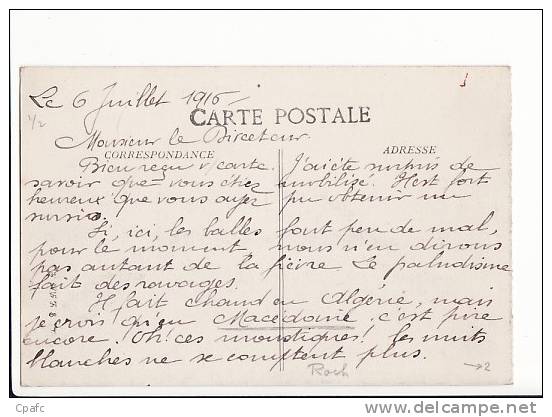 Le 6 Juillet 1916
CARTE POSTALE
1/2
Monsieur le Directeur.
CORRESPONDANCE
ADRESSE
Bien reçu v/ carte. J'ai été surpris de
savoir que vous étiez mobilisé. Il est fort
heureux que vous ayez pu obtenir un
sursis.
Si, ici, les balles font peu de mal,
pour le moment, nous n'en dirons
pas autant de la fièvre. Le paludisme
fait des ravages.
Il fait chaud en Algérie, mais
je crois qu'en Macédoine c'est pire
encore. Oh! ces moustiques! les nuits
blanches ne se comptent plus.
Roch
→2
Cpafc
delcampe.net